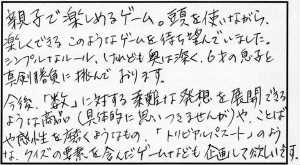 親子で楽しめるゲーム。頭を使いながら、
楽しくできる このようなゲームを待ち望んでいました。
シンプルなルール、けれども奥は深く、6才の息子と
真剣勝負に挑んで おります。
今後、「数」に対する柔軟な発想を展開できる
ような商品(具体的に思いつきませんが)や、ことば
や感性を磨くようなもの、「トリビアルパスート」のよう
な、クイズの要素を含んだゲームなども 企画して欲しいです。